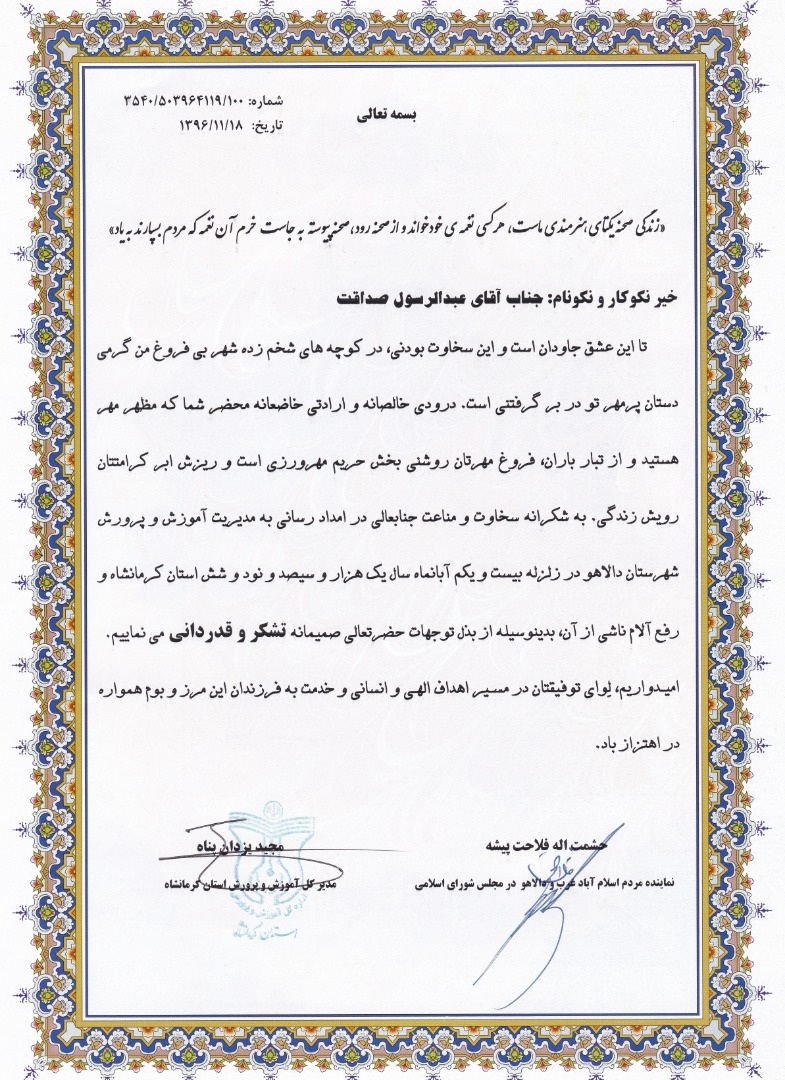 بسمه تعالی
شماره: ۳۵۴۰/۵۰۳۹۶۴۱۱۹/۱۰۰
تاریخ: ۱۳۹۶/۱۱/۱۸
«زندگی صحنه یکتای هنرمندی ماست، هر کسی نغمه ی خود خواند و از صحنه رود، صحنه پیوسته به جاست خرم آن نغمه که مردم بسپارند به یاد»
خیر نکوکار و نکونام: جناب آقای عبدالرسول صداقت
تا این عشق جاودان است و این سخاوت بودنی، در کوچه های شخم زده شهر بی فروغ من گرمی
دستان پرمهر تو در بر گرفتنی است. درودی خالصانه و ارادتی خاضعانه محضر شما که مظهر مهر
هستید و از تبار باران، فروغ مهرتان روشنی بخش حریم مهرورزی است و ریزش ابر کرامتتان
رویش زندگی. به شکرانه سخاوت و مناعت جنابعالی در امداد رسانی به مدیریت آموزش و پرورش
شهرستان دالاهو در زلزله بیست و یکم آبانماه سال یک هزار و سیصد و نود و شش استان کرمانشاه و
رفع آلام ناشی از آن، بدینوسیله از بذل توجهات حضرتعالی صمیمانه تشکر و قدردانی می نماییم.
امیدواریم، لوای توفیقتان در مسیر اهداف الهی و انسانی و خدمت به فرزندان این مرز و بوم همواره
در اهتزاز باد.
حشمت اله فلاحت پیشه
نماینده مردم اسلام آباد غرب و دالاهو در مجلس شورای اسلامی
مجید یزدان پناه
مدیر کل آموزش و پرورش استان کرمانشاه
استان کرمانشاه